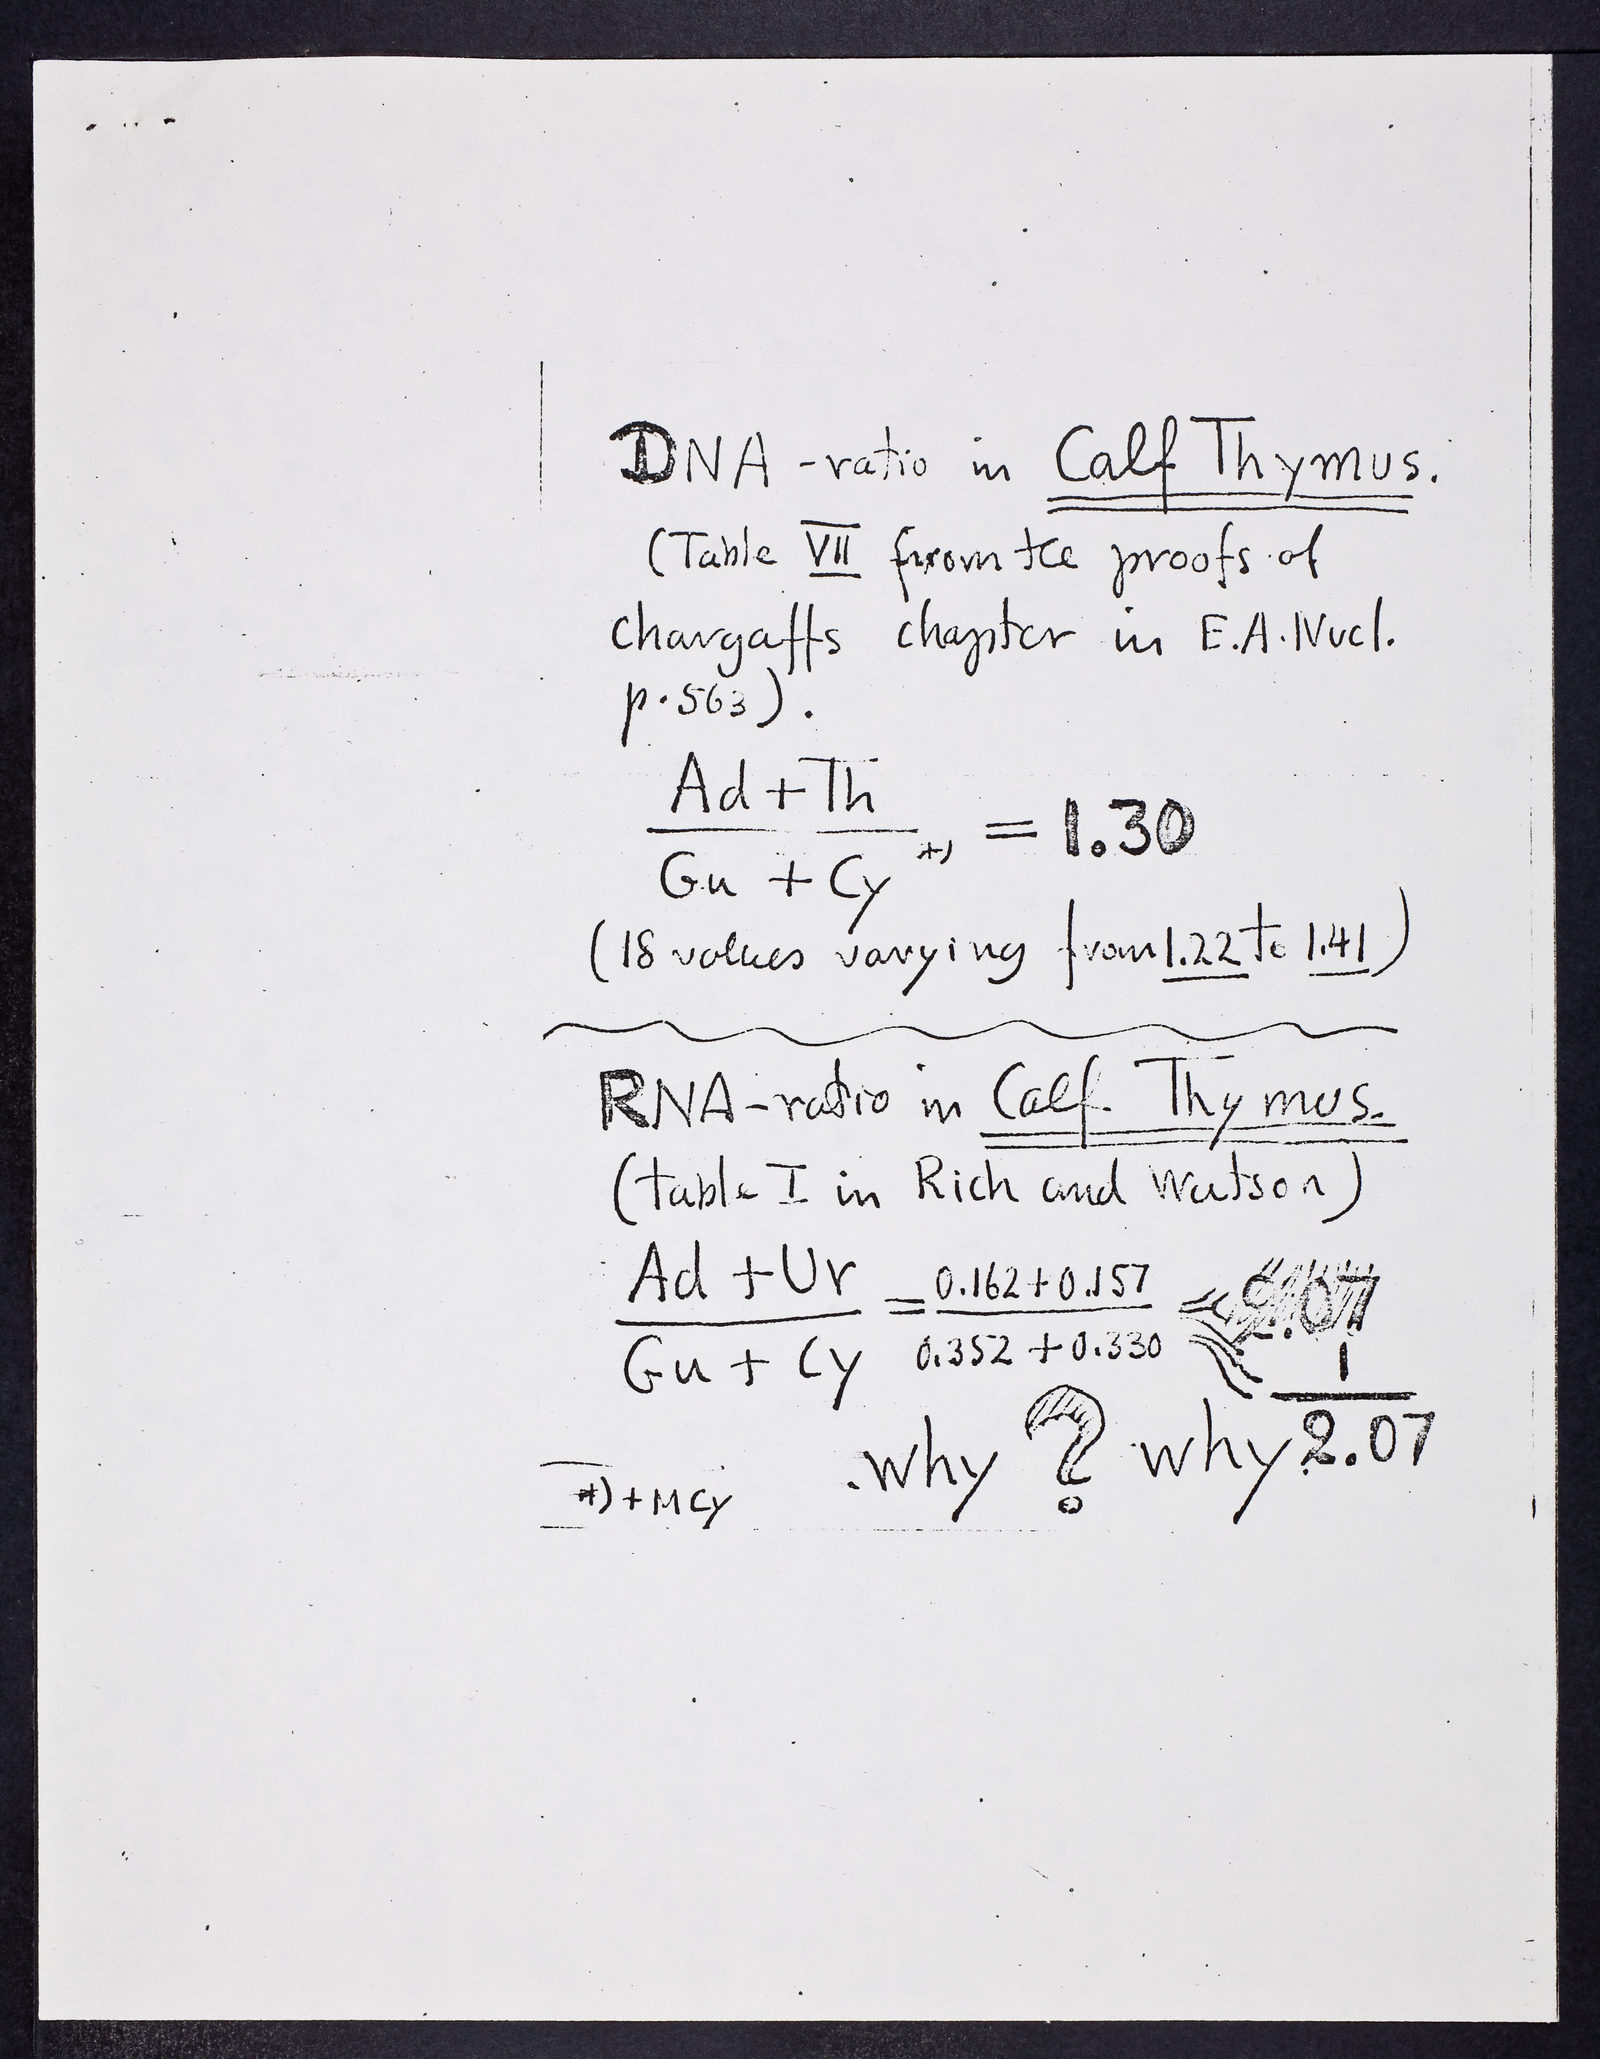 DNA-ratio in Calf Thymus.
(Table VII from the proofs of
Chargaffs chapter in E.A. Nucl.
p. 563).
Ad + Th
Gu + Cy *) = 1.30
(18 values varying from 1.22 to 1.41)
RNA-ratio in Calf Thymus.
(table I in Rich and Watson)
Ad + Ur = 0.162 + 0.157 = 2.07
Gu + Cy 0.352 + 0.330 1
2.07
why ? why
*) + MCy